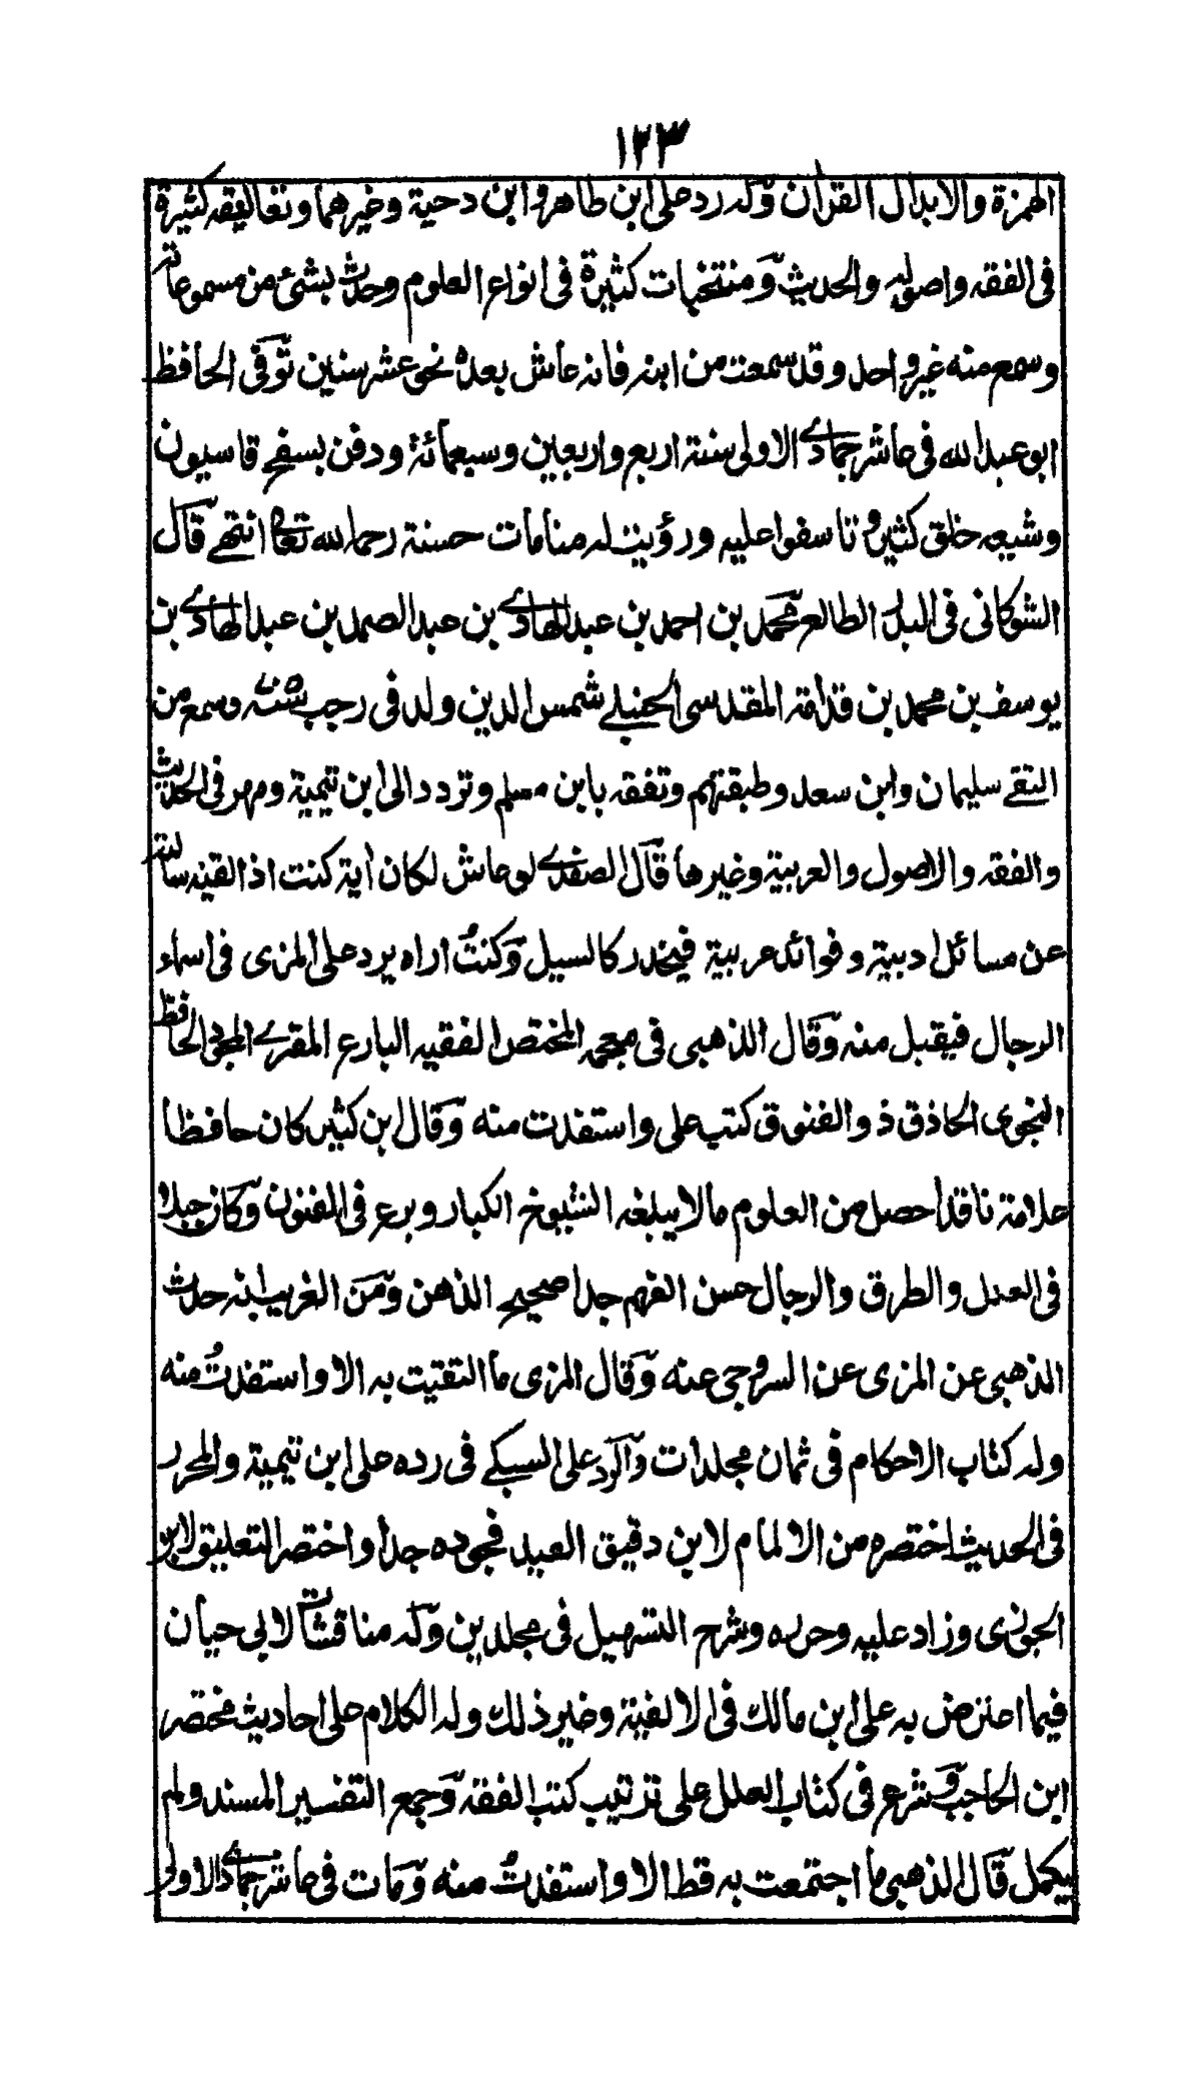 ١٢٣
الهمزة والابدال القرأن وله رد على ابن طاهر وابن دحية وغيرهما وتعاليقه كثيرة
فى الفقه واصوله والحديث ومنتخبات كثيرة فى انواع العلوم وحدث بشئ من مسموعاته
وسمع منه غير واحد وقد سمعت من ابنه فانه عاش بعده نحو عشر سنين توفى الحافظ
ابو عبد الله فى عاشر جمادے الاولى سنة اربع واربعين وسبعمائة ودفن بسفح قاسيون
وشيعه خلق كثير وتاسفوا عليه ورؤيت له منامات حسنة رحمه الله تعالى انتهے قال
الشوكانى فى البدر الطالع محمد بن احمد بن عبد الهادے بن عبد الصمد بن عبد الهادے بن
يوسف بن محمد بن قدامة المقدسى الحنبلے شمس الدين ولد فى رجب سنة وسمع من
التقے سليمان وابن سعد وطبقتهم وتفقه بابن مسلم وتردد الى ابن تيمية ومهر فى الحديث
والفقه والاصول والعربية وغيرها قال الصفدے لو عاش لكان أية كنت اذا لقيته سالته
عن مسائل ادبية وفوائد عربية فيخدر كالسيل وكنتُ اراه يرد على المزى فى اسماء
الرجال فيقبل منه وقال الذهبى فى معجمه المختص الفقيه البارع المقرے المجود الحافظ
النحوى الحاذق ذو الفنون كتب على واستفدت منه وقال ابن كثير كان حافظا
علامة ناقدا حصل من العلوم مالا يبلغه الشيوخ الكبار وبرع فى الفنون وكان جبلا
فى العلل والطرق والرجال حسن الفهم جدا صحيح الذهن ومن الغريب انه حدث
الذهبى عن المزى عن السروجى عنه وقال المزى ما التقيت به الا واستفدتُ منه
وله كتاب الاحكام فى ثمان مجلدات والرد على السبكے فى رده على ابن تيمية والمحرر
فى الحديث اختصره من الالمام لابن دقيق العيد فجوده جدا واختصر التعليق لابن
الجوزى وزاد عليه وحرره وشرح التسهيل فى مجلدين وله مناقشات لابى حيان
فيما اعترض به على ابن مالك فى الالفية وغير ذلك وله الكلام على احاديث مختصر
ابن الحاجب وشرع فى كتاب العلل على ترتيب كتب الفقه وجمع التفسير المسند ولم
يكمل قال الذهبى ما اجتمعت به قط الا واستفدتُ منه ومات فى عاشر جمادے الاولى